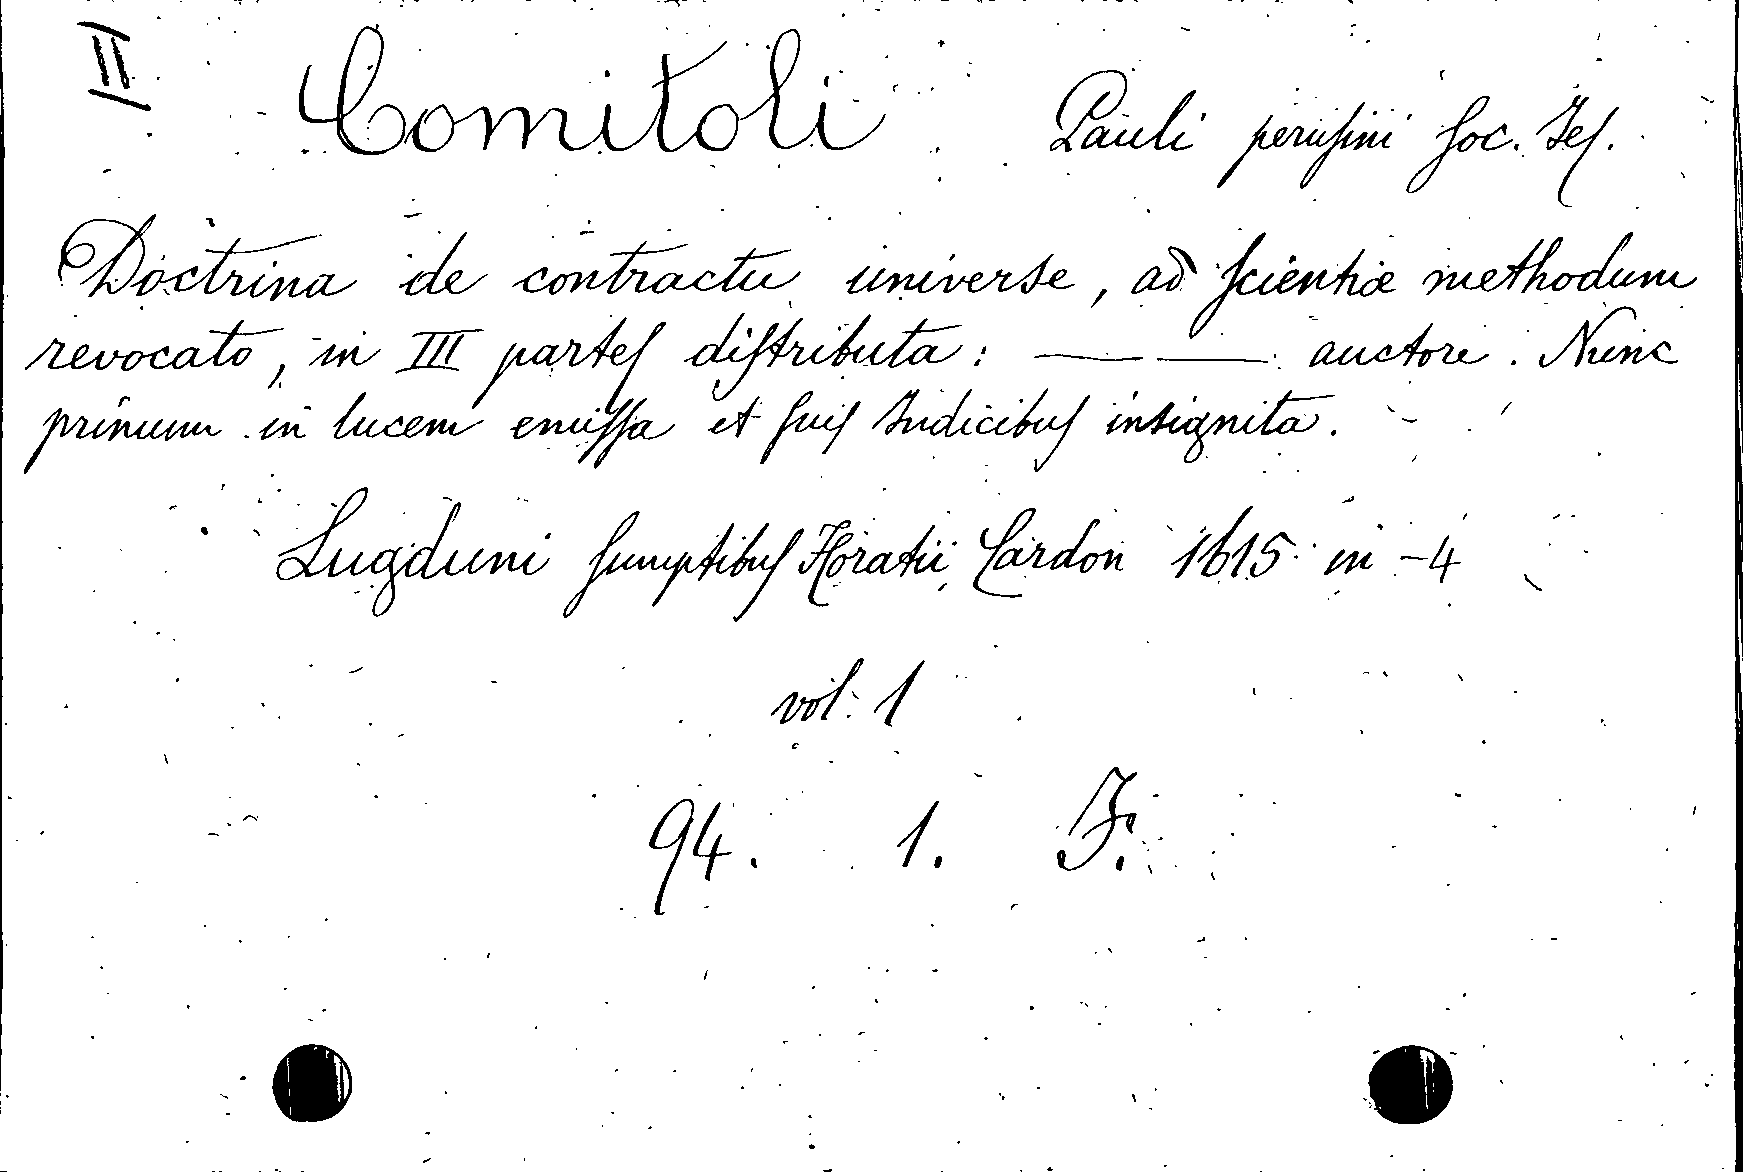 II
Comitoli Pauli peruſini ſoc. Jeſ.
Doctrina de contractu universe, ad ſcientiæ methodum
revocato, in III parteſ diſtributa: —— —— auctore. Nunc
primum in lucem emiſſa et ſuiſ Indicibuſ insignita.
Lugduni ſumptibuſ Horatii Cardon 1615 in -4
vol. 1
94. 1. J.